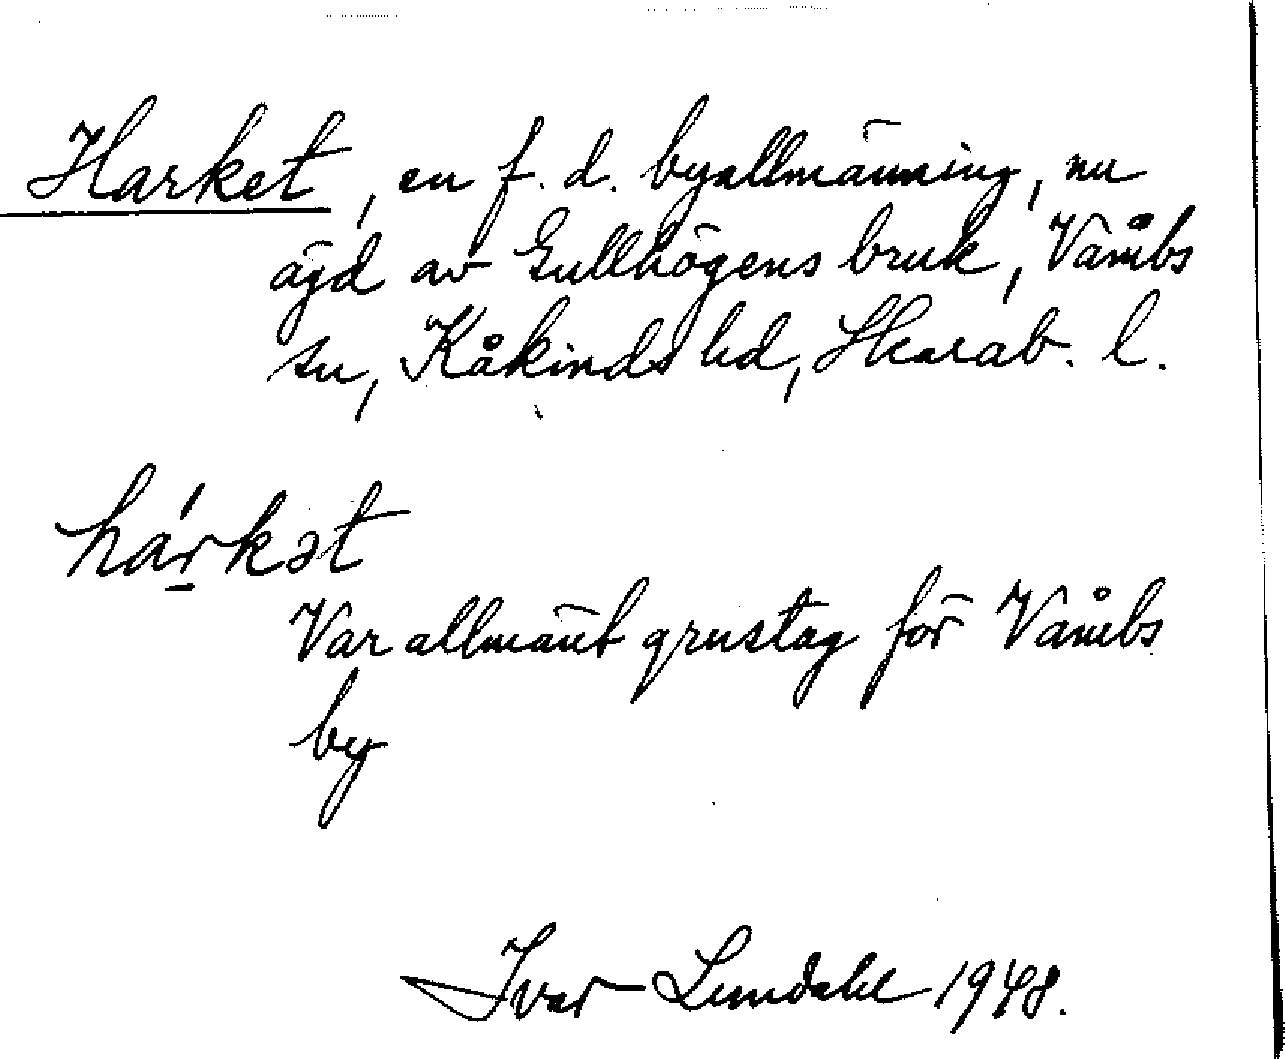 Harket, en f. d. byallmänning, nu
ägd av Gullhögens bruk, Våmbs
sn, Kåkinds hd, Skarab. l.
hárkət
Var allmänt grustag för Våmbs
by
Ivar Lundahl 1948.